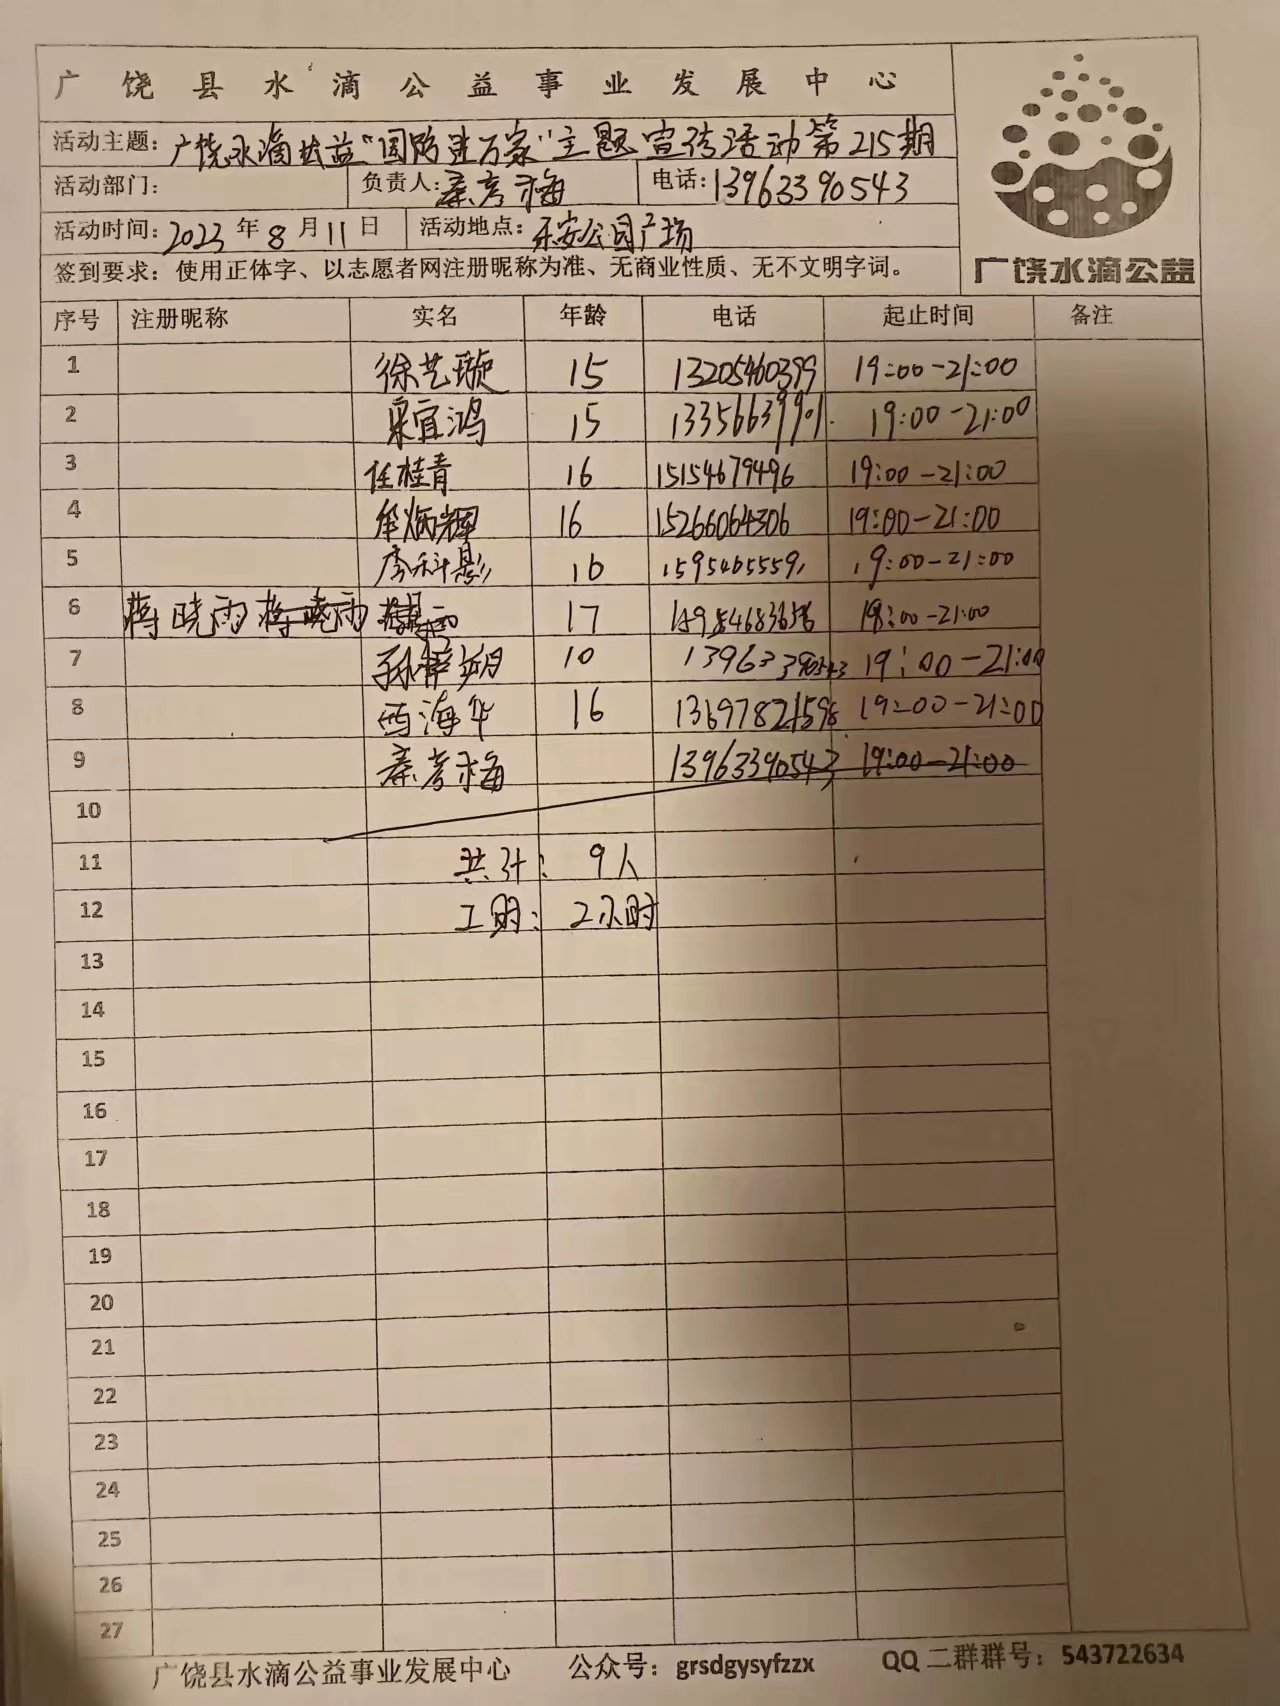 广饶县水滴公益事业发展中心
活动主题：广饶水滴公益“国防进万家”主题宣传活动第215期
活动部门： 负责人：秦考梅 电话：13963390543
活动时间：2023年8月11日 活动地点：乐安公园广场
签到要求：使用正体字、以志愿者网注册昵称为准、无商业性质、无不文明字词。
广饶水滴公益
序号 注册昵称 实名 年龄 电话 起止时间 备注
1 徐艺璇 15 13205460399 19:00-21:00
2 宜鸿 15 13356639901 19:00-21:00
3 任桂青 16 15154679496 19:00-21:00
4 炳辉 16 15266064306 19:00-21:00
5 李科影 16 15954655591 19:00-21:00
6 蒋晓雨 蒋晓雨 17 19:00-21:00
7 孙 10 13963390543 19:00-21:00
8 西海华 16 13697821598 19:00-21:00
9 秦考梅 13963390543 19:00-21:00
10
11 共计：9人
12 工时：2小时
13
14
15
16
17
18
19
20
21
22
23
24
25
26
27
广饶县水滴公益事业发展中心 公众号：grsdgysyfzzx QQ二群群号：543722634